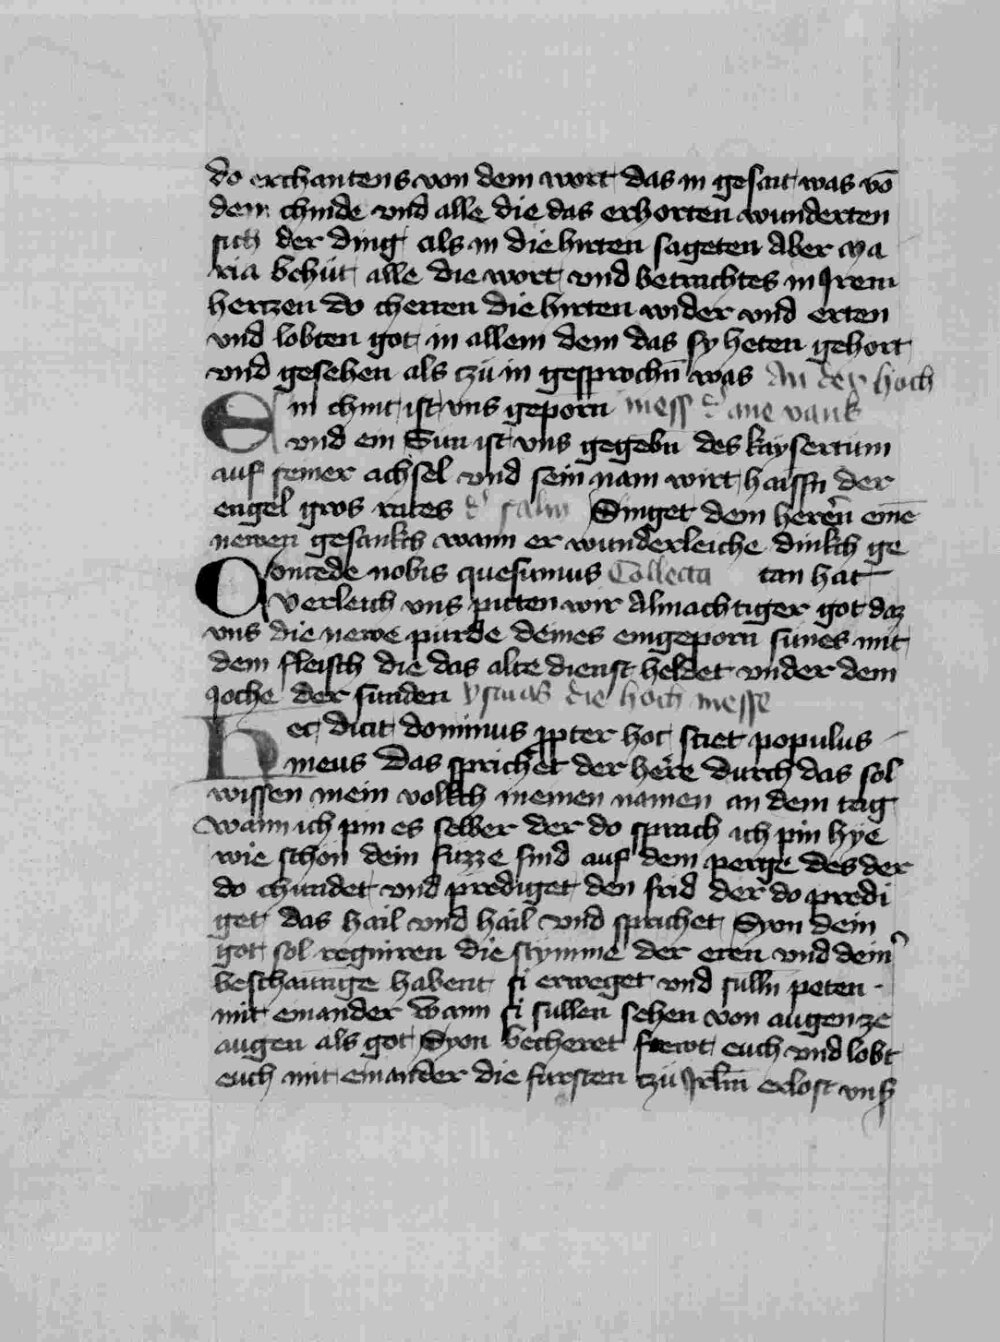 do erchantens von dem wort das in gesait was vō
dem chinde vnd alle die das erhorten wunderten
sich der ding als in die hirten sageten Aber Ma
ria behūt alle die wort vnd betrachtes in Jrem
hertzen do cherten die hirten wider vnd erten
vnd lobten got in allem dem das sy heten gehort
vnd gesehen als tzū in gesprochn̄ was An der hoch
Ein chint ist vns geporn mess d' ane vank
vnd ein Sun ist vns gegebn̄ des kaysertum
auf seiner achsel vnd sein nam wirt haissn̄ der
engel gros rates d' psalm Singet dem heren̄ einē
newen gesankch wann er wunderleiche dinkch ge
Concede nobis quesumus Collecta tan hat
Verleich vns pitten wir Almachtiger got daz
vns die newe purde deines eingeporn sunes mit
dem fleisch die das alte dienst heldet vnder dem
Joche der sunden ysaias die hoch messe
Hec dicit dominus ꝓpter hoc sciet populus
meus Das sprichet der here durch das sol
wissen mein volkch meinen namen an dem tag
wann ich pin es selber der do sprach ich pin hye
wie schon dein fuzze sind auf dem perge des der
do chundet vnd prediget den frid der do predi
get das hail vnd hail vnd sprichet Syon dein
got sol regniren die stymme der eren vnd dein'
beschaunge habent si erweget vnd sulln̄ peten
mit einander Wann si sullen sehen von augen ze
augen als got Syon becheret frewt euch vnd lobt
euch mit einander die fursten tzū Jrl̄m erlost vnsʒ